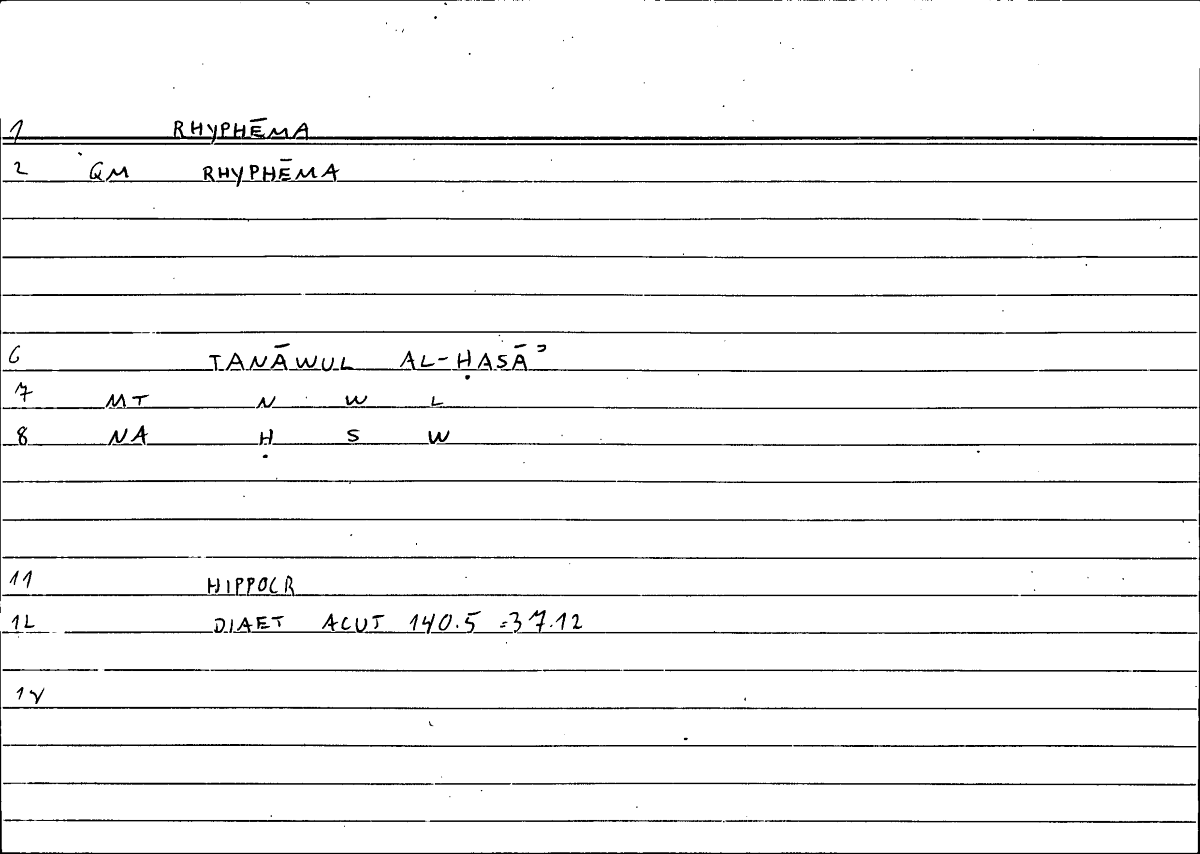 1 RHYPHĒMA
2 QM RHYPHĒMA
6 TANĀWUL AL-ḤASĀʾ
7 MT N W L
8 NA Ḥ S W
11 HIPPOCR
12 DIAET ACUT 140.5 =37.12